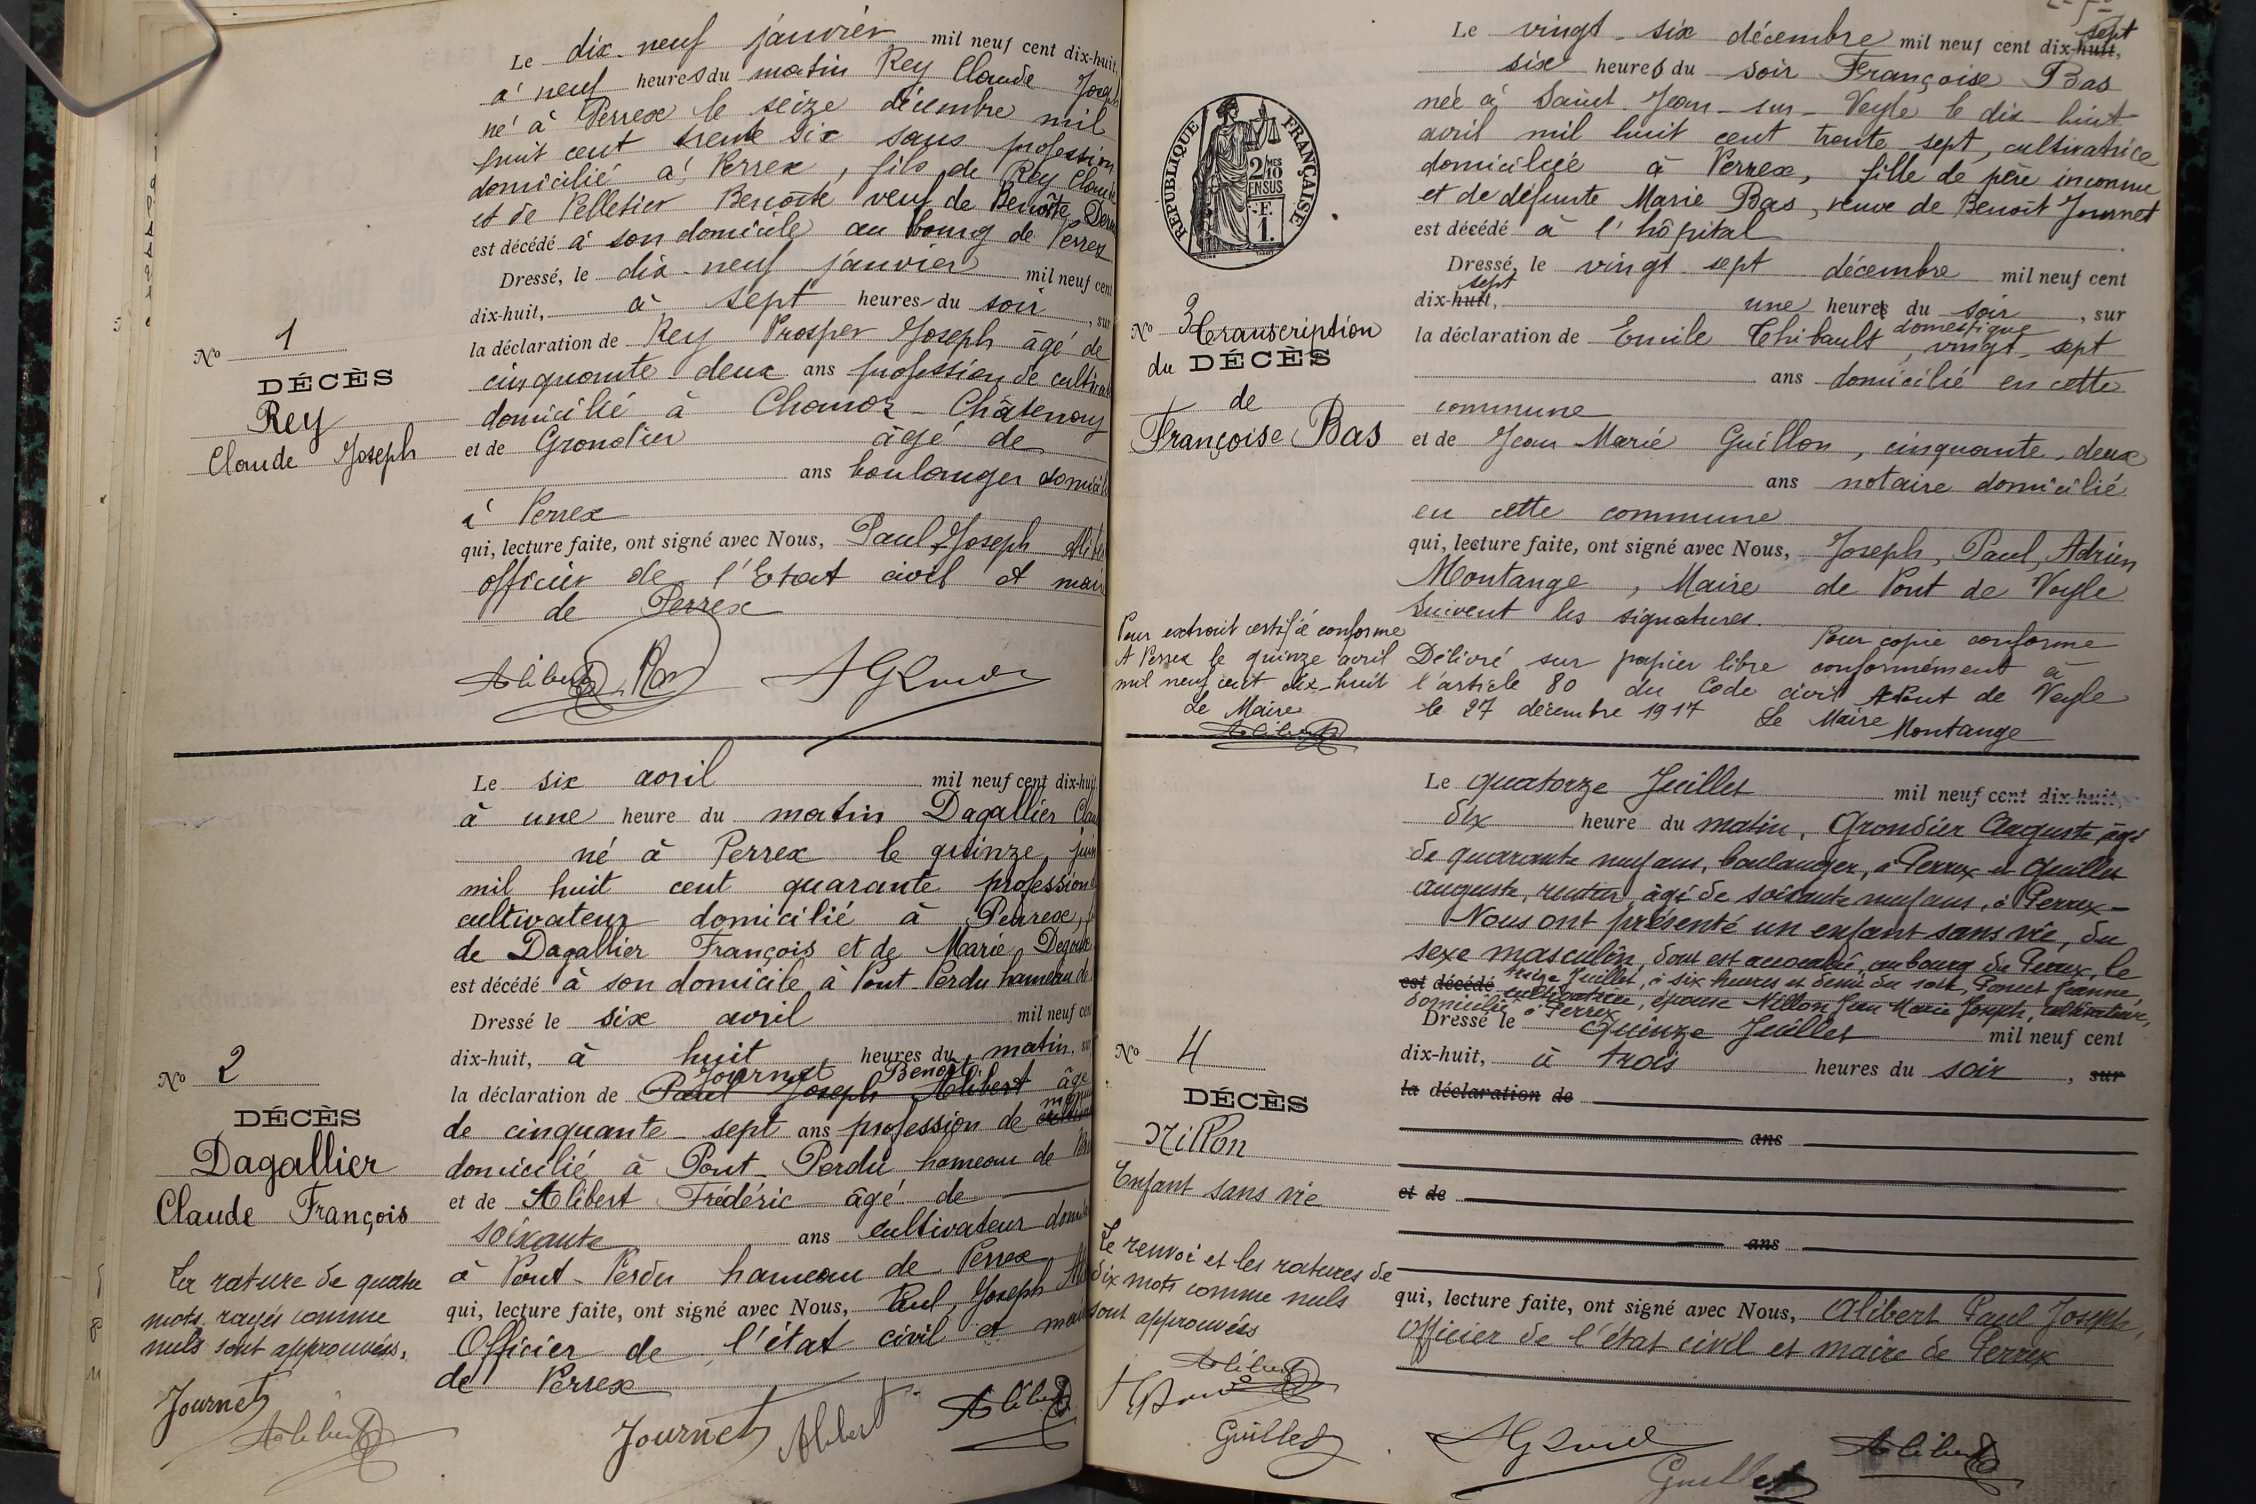 Le dix-neuf janvier mil neuf cent dix-huit,
à neuf heures du matin Rey Claude Joseph
né à Perrex le seize décembre mil
huit cent trente six sans profession
domicilié à Perrex, fils de Rey Claude
et de Pelletier Benoîte veuf de Benoîte
est décédé à son domicile au bourg de Perrex
Dressé, le dix-neuf janvier mil neuf cent
dix-huit, à sept heures du soir, sur
la déclaration de Rey Prosper Joseph âgé de
cinquante deux ans profession de
domicilié à Chanoz-Châtenay
et de Grondier âgé de
ans boulanger
à Perrex
qui, lecture faite, ont signé avec Nous, Paul, Joseph
officier de l'Etat civil et
de Perrex
Alibert
No 1
DÉCÈS
Rey
Claude Joseph
Le six avril mil neuf cent dix-huit
à une heure du matin Dagallier
né à Perrex le quinze
mil huit cent quarante profession
cultivateur domicilié à Perrex,
de Dagallier François et de Marie
est décédé à son domicile à Pont-Perdu hameau de
Dressé le six avril mil neuf cent
dix-huit, à huit heures du matin, sur
Journet Benoît
la déclaration de Paul Joseph Alibert âgé
de cinquante-sept ans profession de
domicilié à Pont-Perdu hameau de
et de Alibert Frédéric âgé de
soixante ans cultivateur
à Pont-Perdu hameau de Perrex
qui, lecture faite, ont signé avec Nous, Paul, Joseph
Officier de l'état civil et
de Perrex
Journet Alibert Alibert
No 2
DÉCÈS
Dagallier
Claude François
La rature de quatre
mots rayés comme
nuls sont approuvés.
Journet
Alibert
Le vingt-six décembre mil neuf cent dix-huit, sept
six heures du soir Françoise Bas
née à Saint-Jean-sur-Veyle le dix-huit
avril mil huit cent trente-sept, cultivatrice
domiciliée à Perrex, fille de père inconnu
et de défunte Marie Bas, veuve de Benoît Journet
est décédé à l'hôpital
Dressé, le vingt-sept décembre mil neuf cent
sept
dix-huit, une heures du soir, sur
domestique
la déclaration de Emile Thibault, vingt-sept
ans domicilié en cette
commune
et de Jean-Marie Guillon, cinquante-deux
ans notaire domicilié
en cette commune
qui, lecture faite, ont signé avec Nous, Joseph, Paul, Adrien
Montange, Maire de Pont de Veyle
Suivent les signatures.
Pour copie conforme
Délivré sur papier libre conformément à
l'article 80 du Code civil A Pont de Veyle
le 27 décembre 1917 Le Maire
Montange
RÉPUBLIQUE FRANÇAISE
2 MES
10
EN SUS
F.
1.
No 3 Transcription
du DÉCÈS
de
Françoise Bas
Pour extrait certifié conforme
A Perrex le quinze avril
mil neuf cent dix-huit
Le Maire
Alibert
Le quatorze Juillet mil neuf cent dix-huit,
dix heure du matin, Grondier Auguste âgé
de quarante neuf ans, boulanger, à Perrex et Guillet
Auguste, rentier, âgé de soixante neuf ans, à Perrex-
Nous ont présenté un enfant sans vie, du
sexe masculin, dont est accouchée, au bourg de Perrex, le
treize Juillet, à six heures et demie du soir, Poncet Jeanne
est décédé cultivatrice, épouse Nillon Jean Marie Joseph, cultivateur,
domicilié à Perrex
Dressé le Quinze Juillet mil neuf cent
dix-huit, à trois heures du soir, sur
la déclaration de
ans
et de
ans
qui, lecture faite, ont signé avec Nous, Alibert Paul Joseph,
officier de l'état civil et maire de Perrex
Guillet Alibert
No 4
DÉCÈS
Nillon
Enfant sans vie
Le renvoi et les ratures de
dix mots comme nuls
sont approuvés
Alibert
Guillet